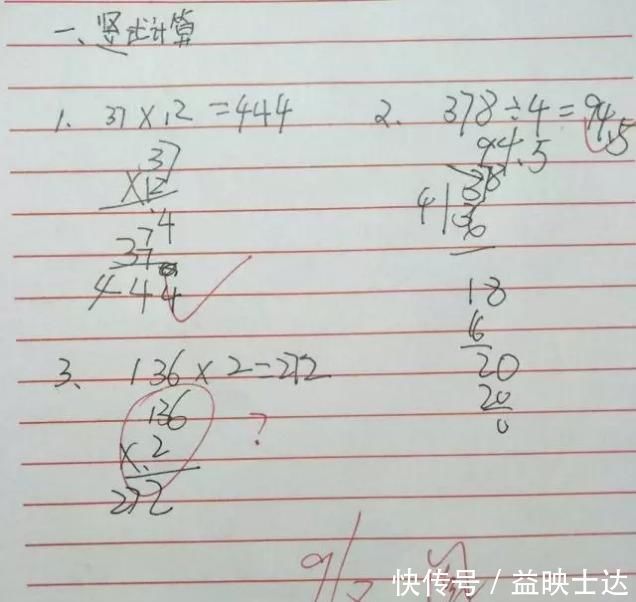 一、竖式计算
1. 37×12=444
2. 378÷4=94.5
37
×12
74
37
444
94.5
4
378
36
18
16
20
20
0
3、136×2=272
136
×2
272
?
快传号/益映士达